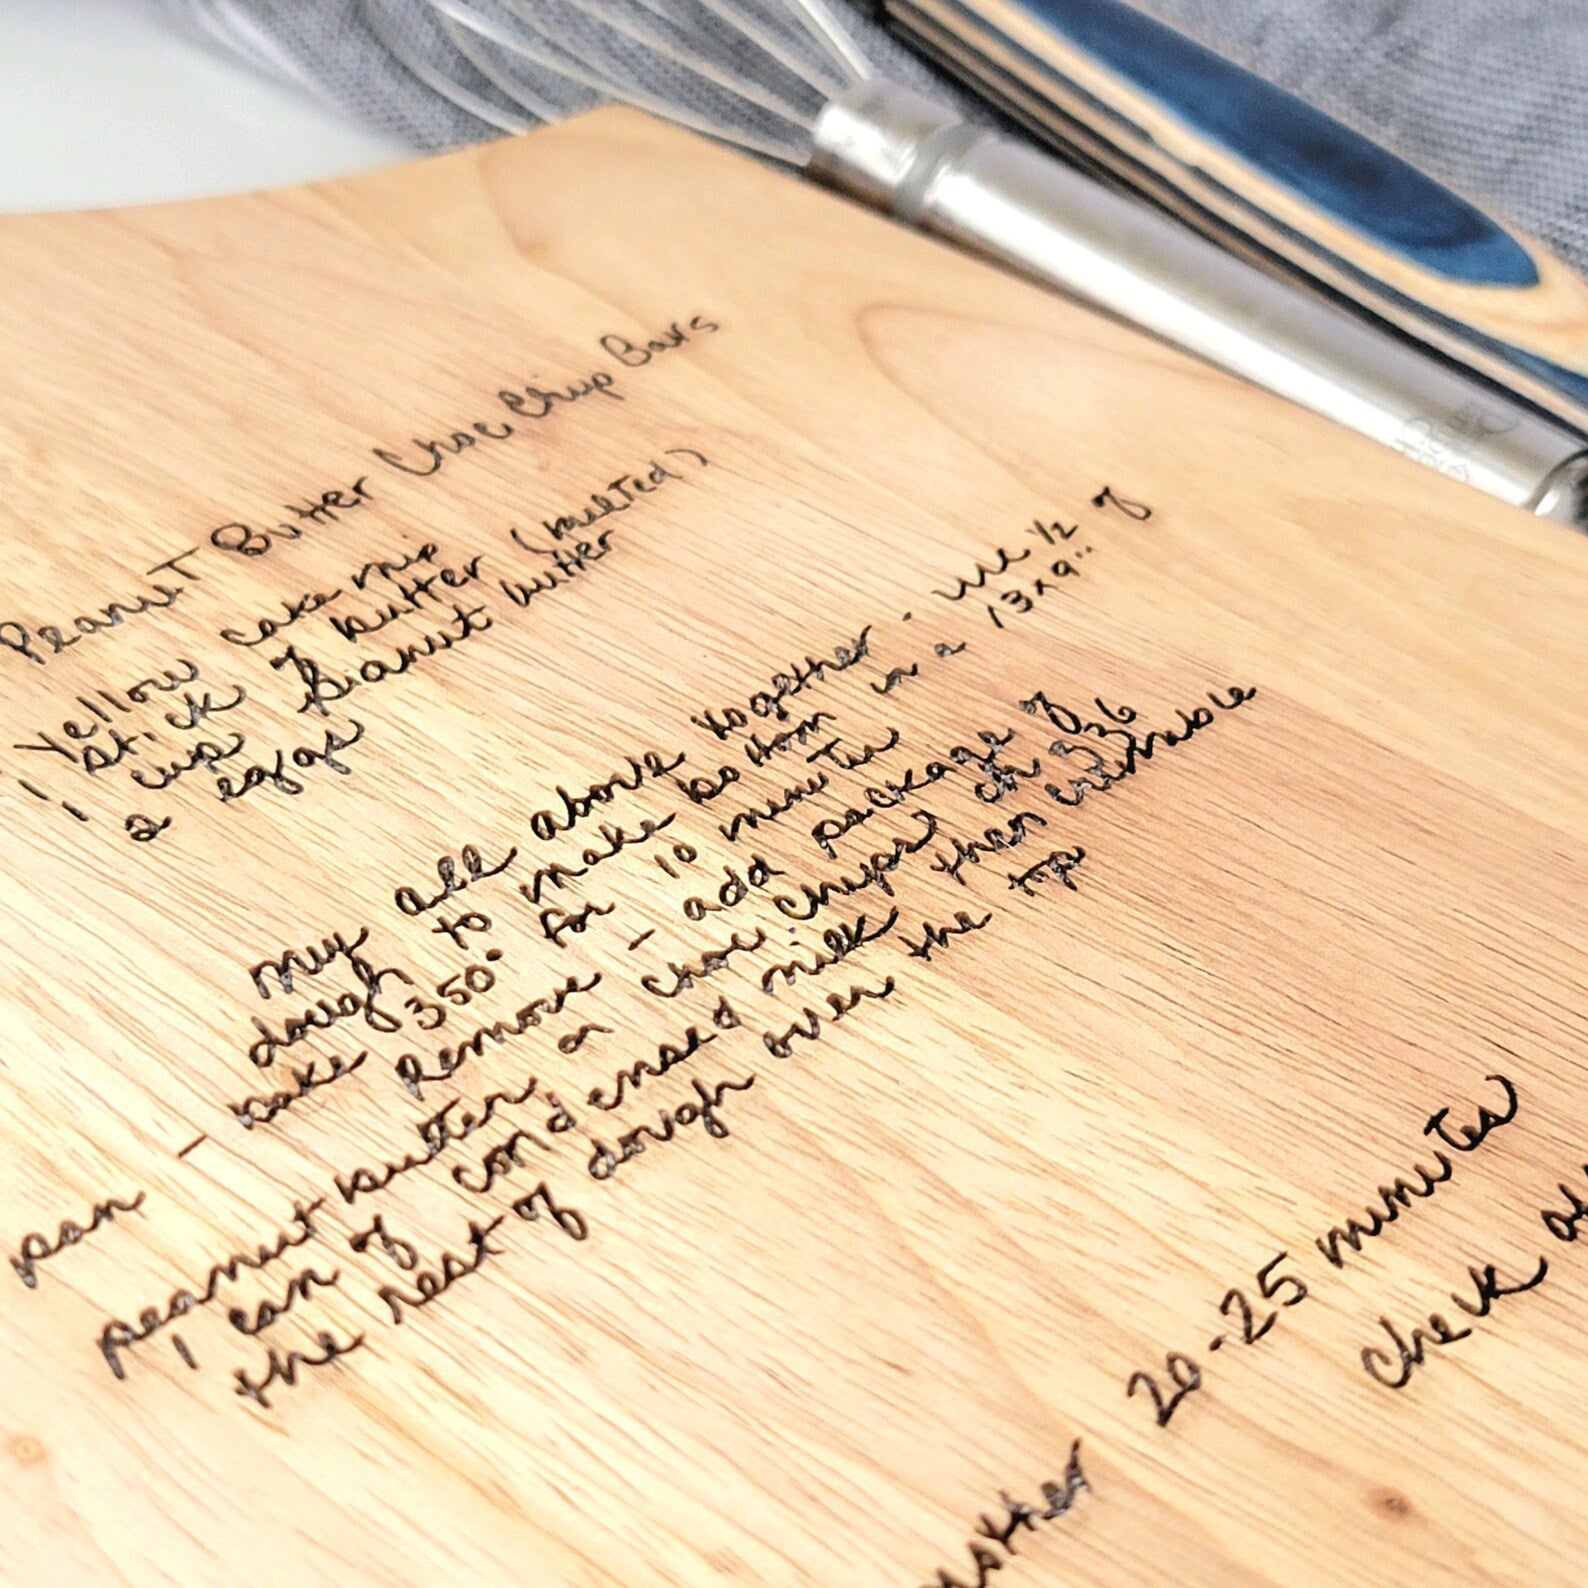 Peanut Butter Choc Chip Bars
1 Yellow cake mix
1 stick of butter (melted)
1 cup peanut butter
2 eggs
Mix all above together - use 1/2 of
dough to make bottom in a 13x9"
pan - bake 350° for 10 minutes
Remove - add package of
peanut butter or choc. chips
1 can of condensed milk then crumble
the rest of dough over the top
20-25 minutes
check